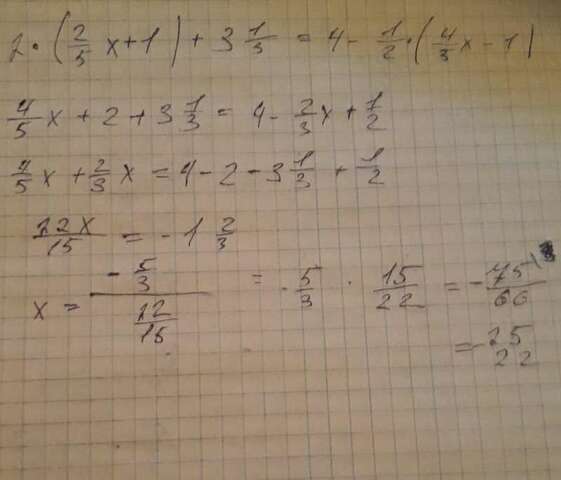 2·(2/5 x+1)+3 1/3 = 4- 1/2·(4/3 x-1)
4/5 x+2+3 1/3 = 4- 2/3 x+1/2
4/5 x+2/3 x = 4-2-3 1/3+1/2
22x/15 = -1 2/3
x = (-5/3)/(22/15) = -5/3 · 15/22 = -75/66
= -25/22